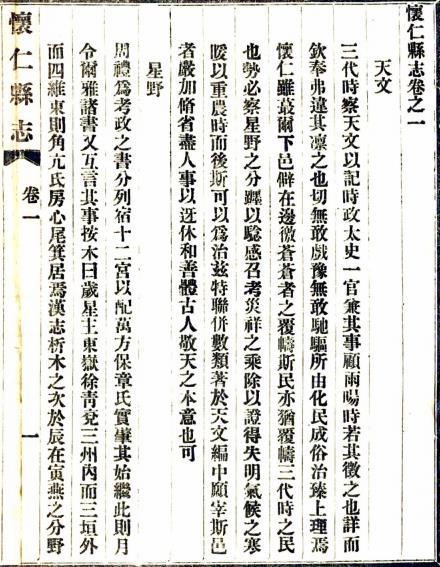 懷仁縣志卷之一
天文
三代時察天文以記時政太史一官兼其事顧雨暘時若其徵之也詳而
欽奉弗違其凛之也切無敢戲豫無敢馳驅所由化民成俗治臻上理焉
懷仁雖蕞爾下邑僻在邊徼蒼蒼者之覆幬斯民亦猶覆幬三代時之民
也勢必察星野之分躔以騐感召考災祥之乘除以證得失明氣候之寒
暖以重農時而後斯可以爲治兹特聯併數類著於天文編中願宰斯邑
者嚴加脩省盡人事以迓休和善體古人敬天之本意也可
星野
周禮爲考政之書分列宿十二宮以配萬方保章氏實肇其始繼此則月
令爾雅諸書又互言其事按木曰歲星主東嶽徐青兗三州內而三垣外
而四維東則角亢氐房心尾箕居焉漢志析木之次於辰在寅燕之分野
懷仁縣志
卷一
一